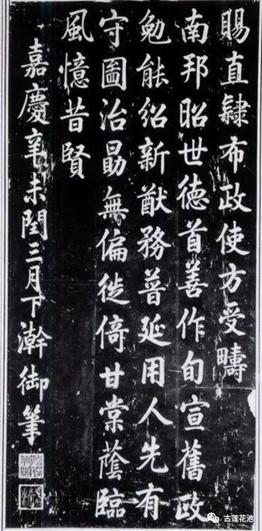 賜直隸布政使方受疇
南邦昭世德首善作旬宣舊政
勉能紹新猷務普延用人先有
守圖治勗無偏徙倚甘棠蔭臨
風憶昔賢
嘉慶辛未閏三月下澣御筆
古莲花池